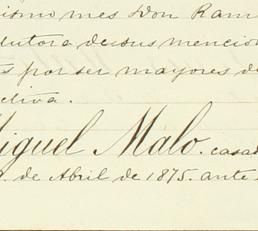 ismo mes Don Ram
dutora de sus mencio
s por ser mayores d
ectiva.
Miguel Malo. casad
9. de Abril de 1875. ante